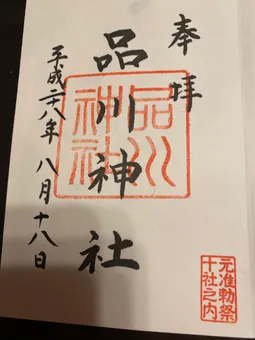 奉拝
品川神社
品川神社
平成二十八年八月十八日
元准勅祭
十社之内